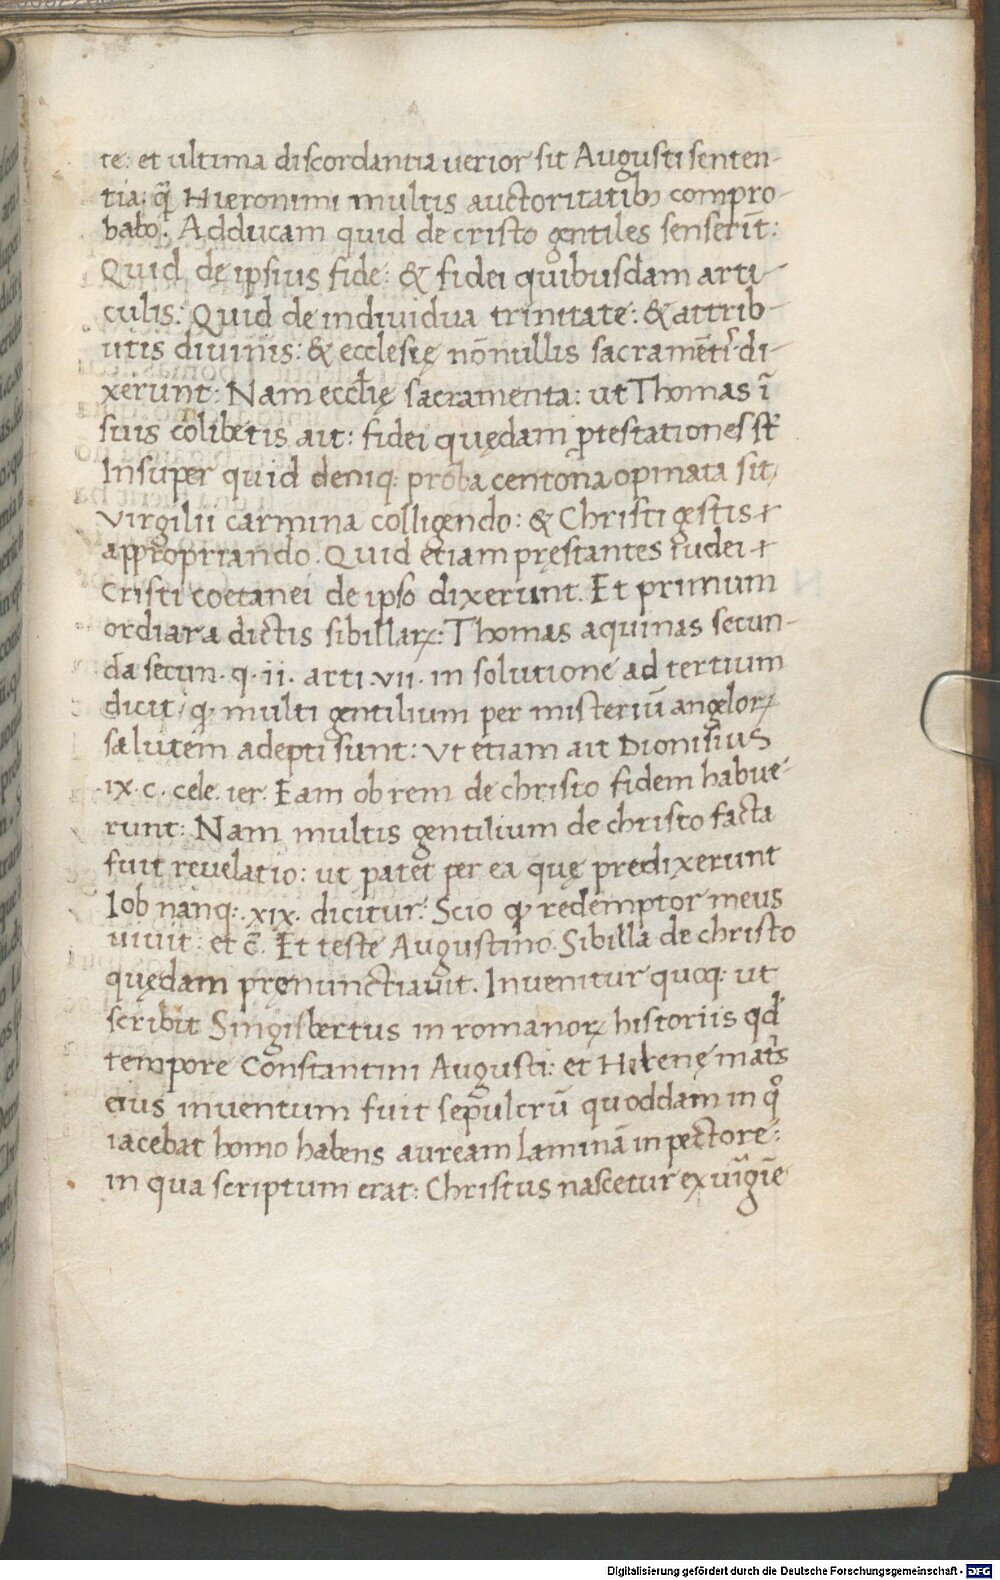 te: et ultima discordantia uerior sit Augusti senten-
tia: q̄ Hieronimi multis auctoritatibȝ compro-
babo. Adducam quid de cristo gentiles senserīt:
Quid de ipsius fide: & fidei quibusdam arti-
culis: Quid de indiuidua trinitate: & attrib-
utis diuinis: & ecclesię nōnullis sacramētis di-
xerunt: Nam eccłię sacramenta: ut Thomas ī
suis colibetis ait: fidei quędam ꝓtestationes sūt
Insuper quid deniq; proba centona opinata sit
Virgilii carmina colligendo: & Christi gestis
appropriando. Quid etiam pręstantes iudei
Cristi coetanei de ipso dixerunt. Et primum
ordiar a dictis sibillaꝝ: Thomas aquinas secun-
da secun. q. ii. arti. vii. in solutione ad tertium
dicit: ꝙ multi gentilium per misteriū angeloꝝ
salutem adepti sunt: Vt etiam ait Dionisius
.ix. c. cele. ier. Eam ob rem de christo fidem habue-
runt: Nam multis gentilium de christo facta
fuit reuelatio: ut patet per ea quę predixerunt
Iob nanq; .xix. dicitur: Scio ꝙ redemptor meus
uiuit: et c̄. Et teste Augustino. Sibilla de christo
quędam pręnunctiauit. Inuenitur quoq; ut
scribit Singisbertus in romanoꝝ historiis qd'
tempore Constantini Augusti: et Helenę mat͛s
eius inuentum fuit sepulcrū quoddam in qͦ
iacebat homo habens auream laminā in pectore:
in qua scriptum erat: Christus nascetur ex uirgīe
Digitalisierung gefördert durch die Deutsche Forschungsgemeinschaft - DFG